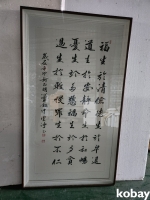 福生於清儉德生於卑退
道生於安靜命生於和暢
憂生於多慾禍生於多貪
過生於輕慢罪生於不仁
kobay